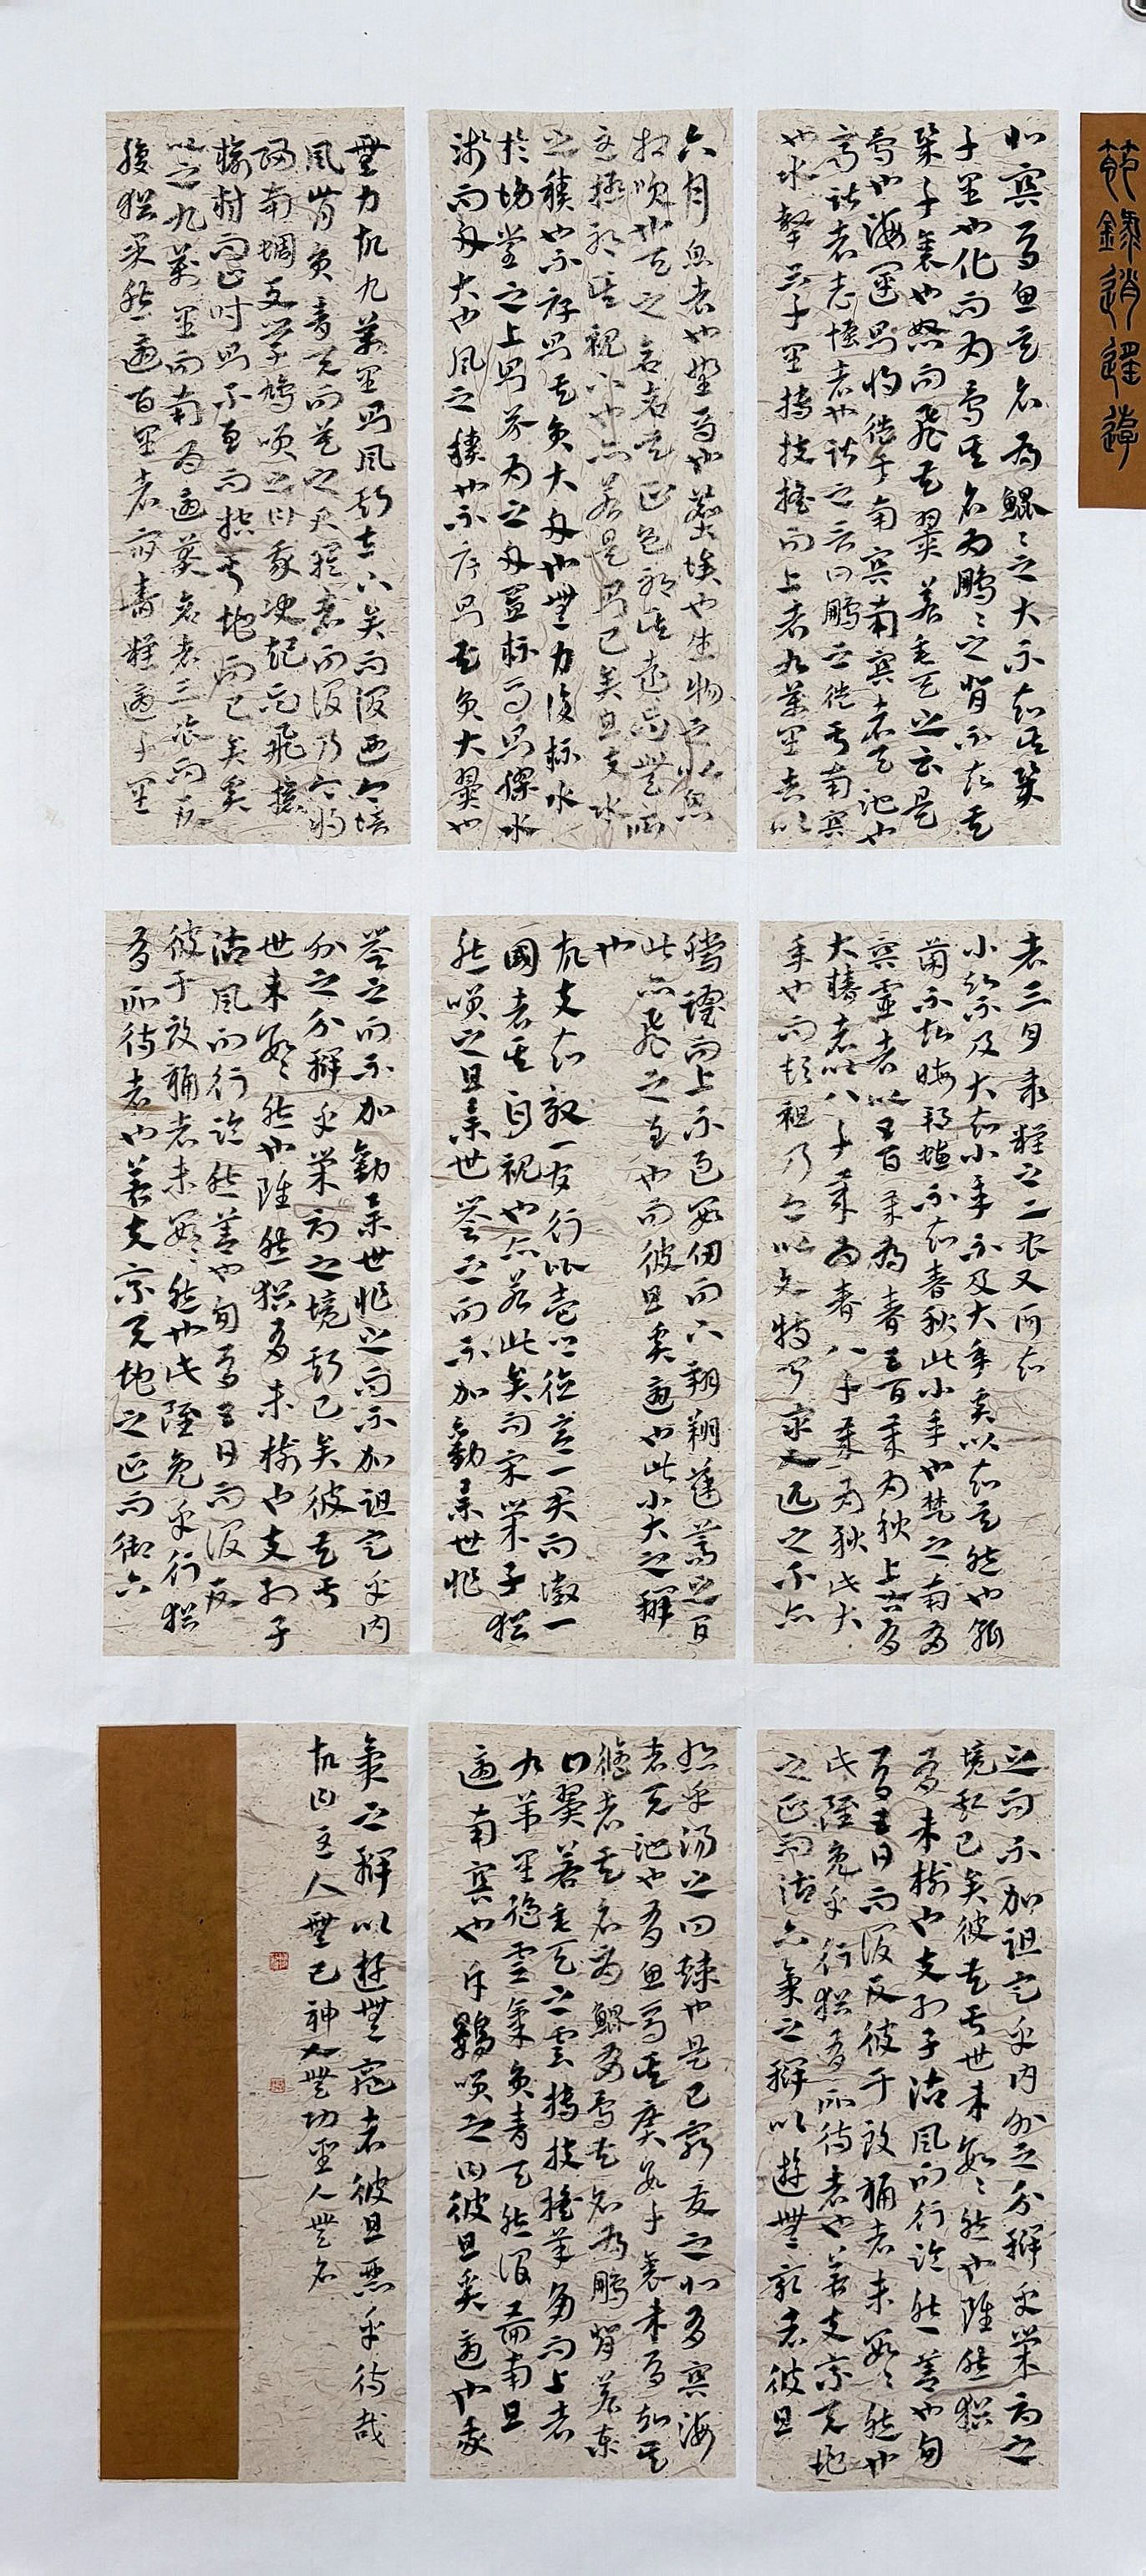 節錄逍遙遊
北冥有魚其名爲鯤〻之大不知其幾
千里也化而爲鳥其名爲鵬〻之背不知其
幾千里也怒而飛其翼若垂天之雲是
鳥也海運則將徙于南冥南冥者天池也
齊諧者志怪者也諧之言曰鵬之徙于南冥
也水擊三千里摶扶搖而上者九萬里去以
六月息者也野馬也塵埃也生物之以息
相吹也天之蒼蒼其正色邪其遠而無所
至極邪其視下也亦若是則已矣且夫水
之積也不厚則其負大舟也無力覆杯水
於坳堂之上則芥爲之舟置杯焉則膠水
淺而舟大也風之積也不厚則其負大翼也
無力故九萬里則風斯在下矣而後乃今培
風背負青天而莫之夭閼者而後乃今將
圖南蜩與學鳩笑之曰我決起而飛搶
榆枋而止時則不至而控于地而已矣奚
以之九萬里而南爲適莽蒼者三飡而反
腹猶果然適百里者宿舂糧適千里
者三月聚糧之二蟲又何知
小知不及大知小年不及大年奚以知其然也朝
菌不知晦朔蟪蛄不知春秋此小年也楚之南有
冥靈者以五百歲爲春五百歲爲秋上古有
大椿者以八千歲爲春八千歲爲秋此大
年也而彭祖乃今以久特聞衆人匹之不亦
騰躍而上不過數仞而下翱翔蓬蒿之間
此亦飛之至也而彼且奚適也此小大之辯
也
故夫知效一官行比一鄉德合一君而徵一
國者其自視也亦若此矣而宋榮子猶
然笑之且舉世譽之而不加勸舉世非
譽之而不加勸舉世非之而不加沮定乎內
外之分辯乎榮辱之境斯已矣彼其于
世未數〻然也雖然猶有未樹也夫列子
御風而行泠然善也旬有五日而後反
彼于致福者未數〻然也此雖免乎行猶
有所待者也若夫乘天地之正而御六
之而不加沮定乎內外之分辯乎榮辱之
境斯已矣彼其于世未數〻然也雖然猶
有未樹也夫列子御風而行泠然善也旬
有五日而後反彼于致福者未數〻然也
此雖免乎行猶有所待者也若夫乘天地
之正而御六氣之辯以遊無窮者彼且
悲乎湯之問棘也是已窮髮之北有冥海
者天池也有魚焉其廣數千里未有知其
修者其名爲鯤有鳥其名爲鵬背若泰
山翼若垂天之雲摶扶搖羊角而上者
九萬里絕雲氣負青天然後圖南且
適南冥也斥鴳笑之曰彼且奚適也我
氣之辯以遊無窮者彼且惡乎待哉
故曰至人無己神人無功聖人無名